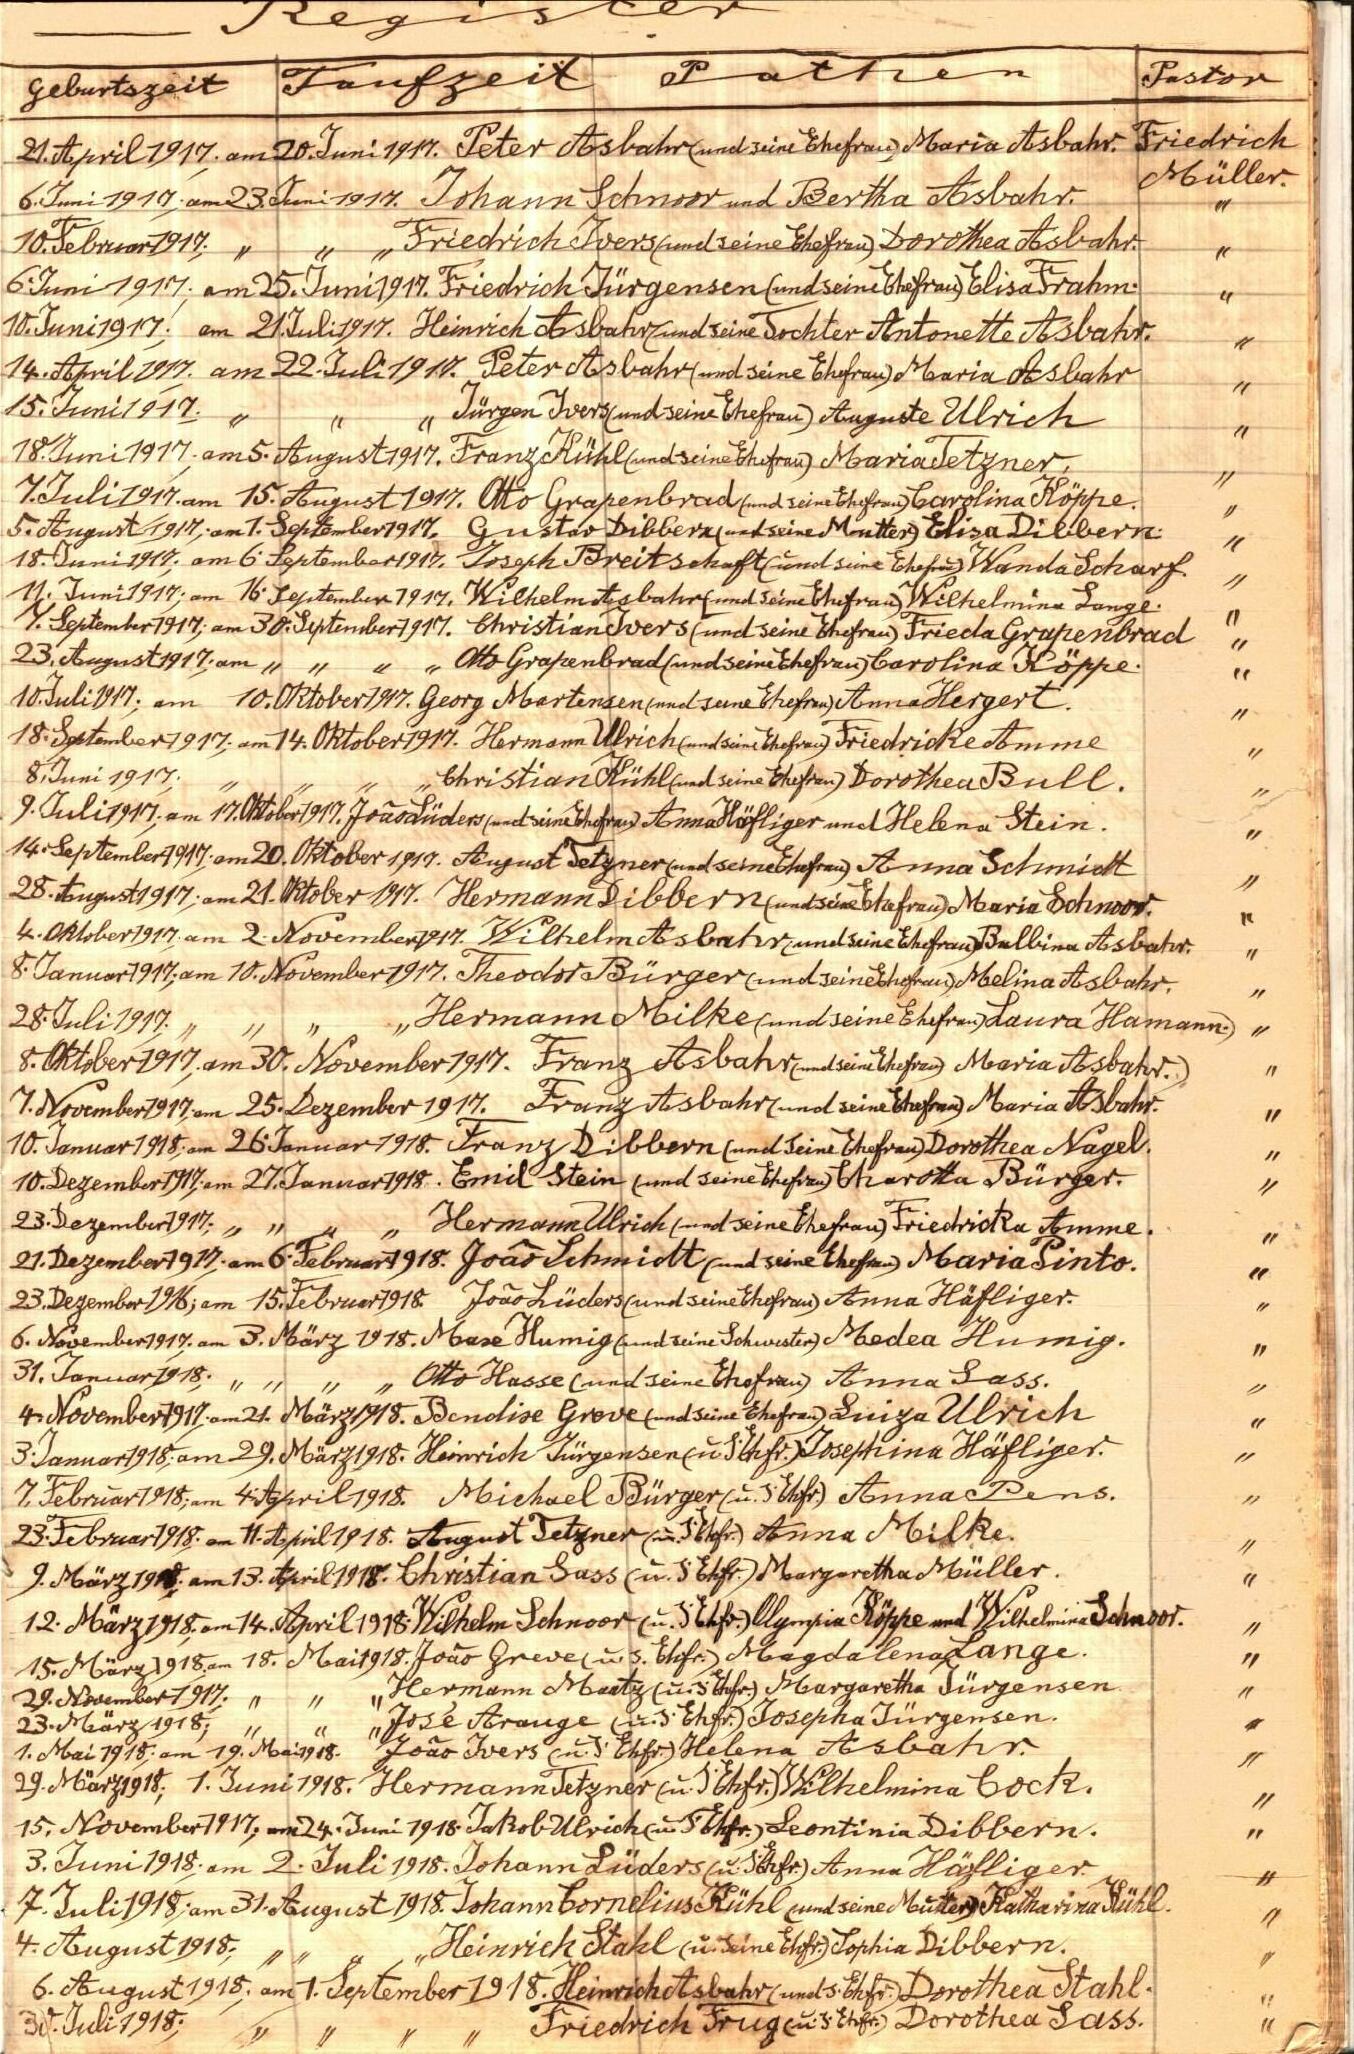 Register
Geburtszeit Taufzeit Pathen Pastor
21. April 1917. am 20. Juni 1917. Peter Asbahr (und seine Ehefrau) Maria Asbahr. Friedrich
Müller.
6. Juni 1917; am 23. Juni 1917. Johann Schnoor und Bertha Asbahr. "
10. Februar 1917; " " " Friedrich Ivers (und seine Ehefrau) Dorothea Asbahr. "
6. Juni 1917; am 25. Juni 1917. Friedrich Jürgensen (und seine Ehefrau) Elisa Frahm. "
10. Juni 1917; am 21. Juli 1917. Heinrich Asbahr (und seine Tochter Antonette Asbahr. "
14. April 1917. am 22. Juli 1917. Peter Asbahr (und seine Ehefrau) Maria Asbahr "
15. Juni 1917. " " " Jürgen Ivers (und seine Ehefrau) Auguste Ulrich "
18. Juni 1917. am 5. August 1917. Franz Kühl (und seine Ehefrau) Maria Tetzner. "
7. Juli 1917. am 15. August 1917. Otto Grapenbrad (und seine Ehefrau) Carolina Köppe. "
5. August 1917; am 1. September 1917. Gustav Dibbern (und seine Mutter) Elisa Dibbern. "
18. Juni 1917; am 6. September 1917. Joseph Breitschaft (und seine Ehefrau) Wanda Scharf "
11. Juni 1917; am 16. September 1917. Wilhelm Asbahr (und seine Ehefrau) Wilhelmina Lange. "
7. September 1917; am 30. September 1917. Christian Ivers (und seine Ehefrau) Frieda Grapenbrad "
23. August 1917; am " " " " Otto Grapenbrad (und seine Ehefrau) Carolina Köppe. "
10. Juli 1917; am 10. Oktober 1917. Georg Martensen (und seine Ehefrau) Anna Hergert. "
18. September 1917; am 14. Oktober 1917. Hermann Ulrich (und seine Ehefrau) Friedricke Amme "
8. Juni 1917; " " " " Christian Kühl (und seine Ehefrau) Dorothea Bull. "
9. Juli 1917; am 17. Oktober 1917. João Lüders (und seine Ehefrau) Anna Häfliger und Helena Stein. "
14. September 1917; am 20. Oktober 1917. August Tetzner (und seine Ehefrau) Anna Schmidt "
28. August 1917; am 21. Oktober 1917. Hermann Dibbern (und seine Ehefrau) Maria Schnoor. "
4. Oktober 1917. am 2. November 1917. Wilhelm Asbahr (und seine Ehefrau) Balbina Asbahr. "
8. Januar 1917; am 10. November 1917. Theodor Bürger (und seine Ehefrau) Melina Asbahr. "
28. Juli 1917. " " " " Hermann Milke (und seine Ehefrau) Laura Hamann.) "
8. Oktober 1917; am 30. November 1917. Franz Asbahr (und seine Ehefrau) Maria Asbahr.) "
7. November 1917; am 25. Dezember 1917. Franz Asbahr (und seine Ehefrau) Maria Asbahr. "
10. Januar 1918; am 26. Januar 1918. Franz Dibbern (und seine Ehefrau) Dorothea Nagel. "
10. Dezember 1917; am 27. Januar 1918. Emil Stein (und seine Ehefrau) Bürger. "
23. Dezember 1917; " " " " Hermann Ulrich (und seine Ehefrau) Friedricka Amme. "
21. Dezember 1917; am 6. Februar 1918. João Schmidt (und seine Ehefrau) Maria Pinto. "
23. Dezember 1916; am 15. Februar 1918. João Lüders (und seine Ehefrau) Anna Häfliger. "
6. November 1917. am 3. März 1918. Humig (und seine Schwester) Medea Humig. "
31. Januar 1918; " " " " Otto Hasse (und seine Ehefrau) Anna Sass. "
4. November 1917; am 21. März 1918. Bendixe Greve (und seine Ehefrau) Luiza Ulrich "
3. Januar 1918; am 29. März 1918. Heinrich Jürgensen (u. s. Ehfr.) Josephina Häfliger. "
7. Februar 1918; am 4. April 1918. Michael Bürger (u. s. Ehfr.) Anna Pens. "
23. Februar 1918. am 11. April 1918. August Tetzner (u. s. Ehfr.) Anna Milke. "
9. März 1918; am 13. April 1918. Christian Sass (u. s. Ehfr.) Margaretha Müller. "
12. März 1918; am 14. April 1918. Wilhelm Schnoor (u. s. Ehfr.) Olympia Köppe und Wilhelmina Schnoor. "
15. März 1918. am 18. Mai 1918. João Greve (u. s. Ehfr.) Magdalena Lange. "
29. November 1917. " " " Hermann Maatz (u. s. Ehfr.) Margaretha Jürgensen "
23. März 1918; " " " José Arauge (u. s. Ehfr.) Josepha Jürgensen. "
1. Mai 1918; am 19. Mai 1918. João Ivers (u. s. Ehfr.) Helena Asbahr. "
29. März 1918; 1. Juni 1918. Hermann Tetzner (u. s. Ehfr.) Wilhelmina Cock. "
15. November 1917; am 24. Juni 1918. Jakob Ulrich (u. s. Ehfr.) Leontinia Dibbern. "
3. Juni 1918. am 2. Juli 1918. Johann Lüders (u. s. Ehfr.) Anna Häfliger. "
7. Juli 1918; am 31. August 1918. Johann Cornelius Kühl (und seine Mutter) Katharina Kühl. "
4. August 1918; " " " " Heinrich Stahl (u. seine Ehfr.) Sophia Dibbern. "
6. August 1918; am 1. September 1918. Heinrich Asbahr (und s. Ehfr.) Dorothea Stahl. "
30. Juli 1918; " " " " Friedrich Frug (u. s. Ehfr.) Dorothea Sass. "